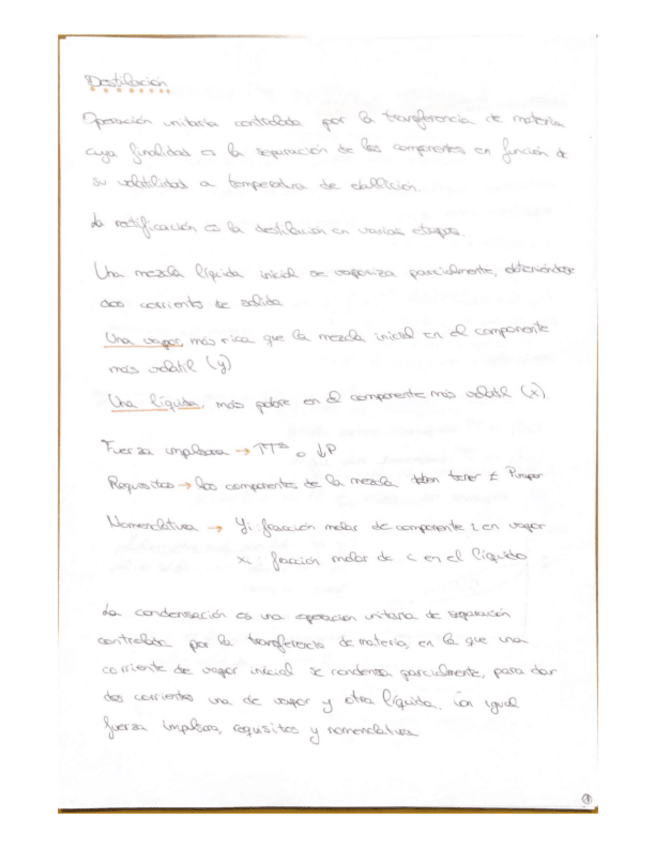 Destilación
Operación unitaria controlada por la transferencia de materia
cuya finalidad es la separación de los componentes en función de
su volatilidad a temperatura de ebullición.
La rectificación es la destilación en varias etapas.
Una mezcla líquida inicial se vaporiza parcialmente, obteniéndose
dos corrientes de salida
Una vapor, más rica que la mezcla inicial en el componente
más volatil (y)
Una líquida, más pobre en el componente más volatil (x).
Fuerza impulsora → ↑Tª o ↓P
Requisitos → los componentes de la mezcla deben tener ≠ Pvapor
Nomenclatura → yi: fracción molar de componente i en vapor
xi: fracción molar de i en el líquido
La condensación es una operación unitaria de separación
controlada por la transferencia de materia, en la que una
corriente de vapor inicial se condensa parcialmente, para dar
dos corrientes una de vapor y otra líquida. Con igual
fuerza impulsora, requisitos y nomenclatura
1